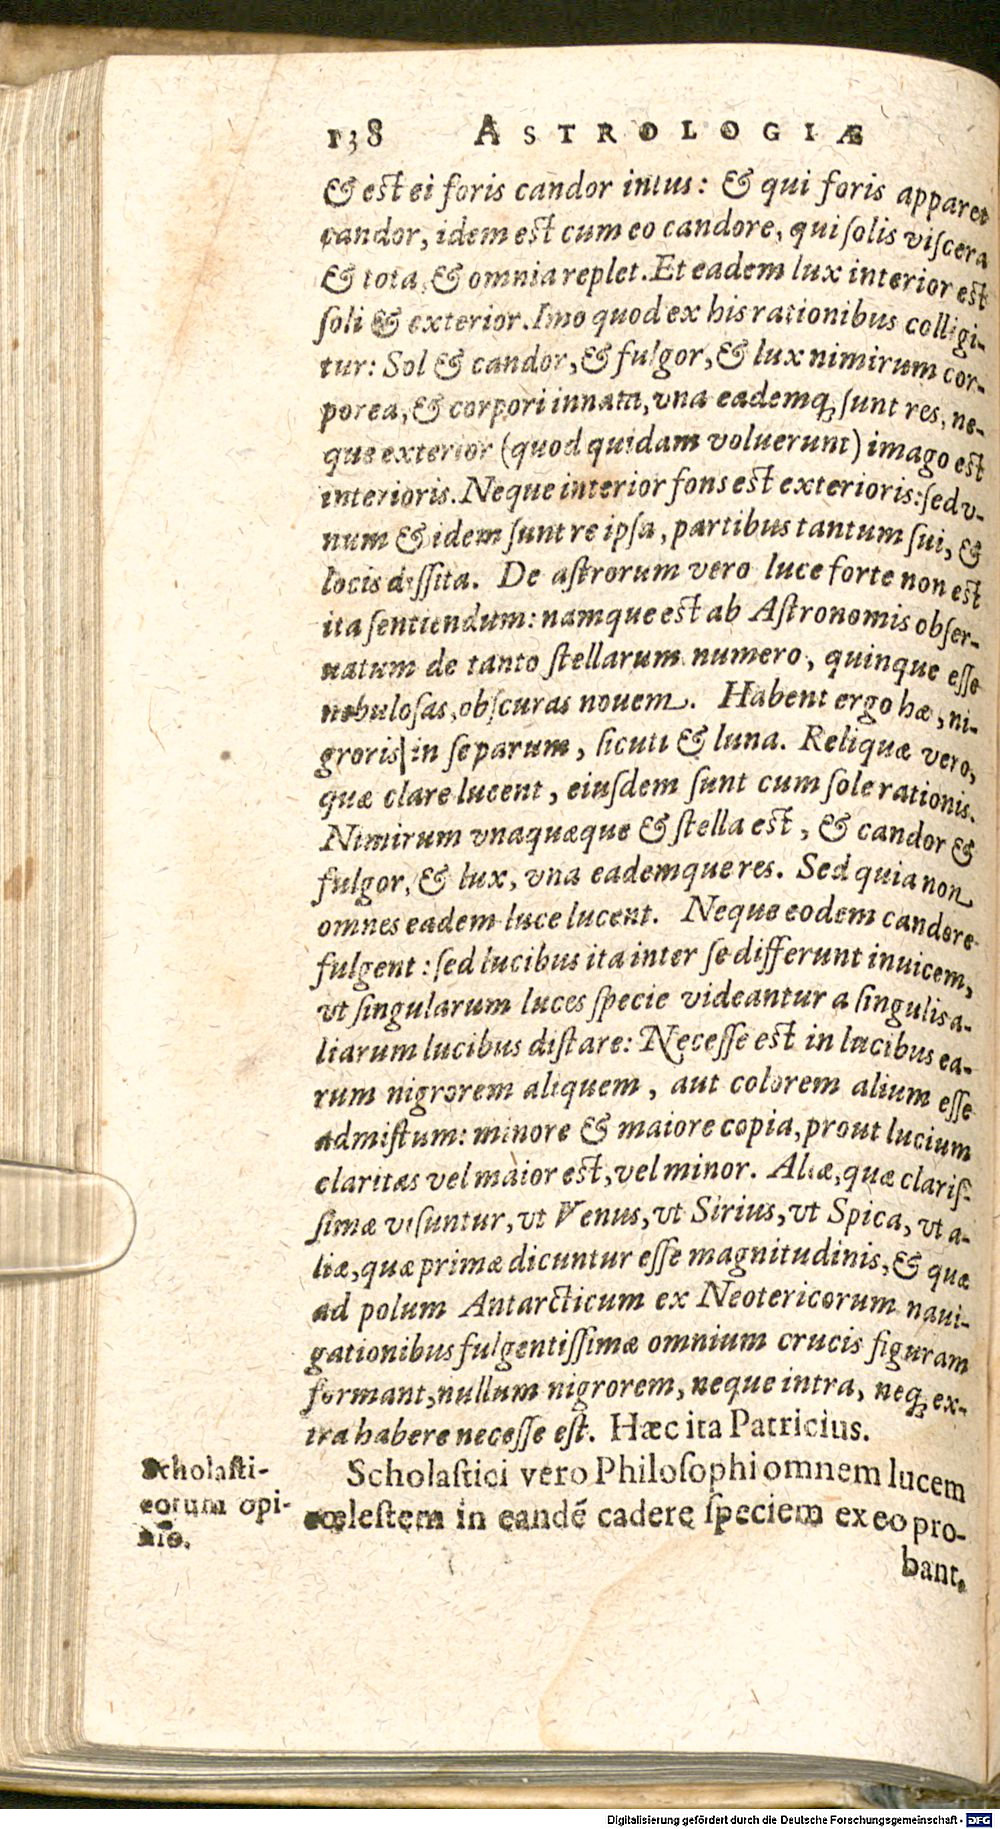 138 ASTROLOGIÆ
& est ei foris candor intus: & qui foris apparet
candor, idem est cum eo candore, qui solis viscera
& tota, & omnia replet. Et eadem lux interior est
soli & exterior. Imo quod ex his rationibus colligi-
tur: Sol & candor, & fulgor, & lux nimirum cor-
porea, & corpori innata, vna eademq; sunt res, ne-
que exterior (quod quidam voluerunt) imago est
interioris. Neque interior fons est exterioris: sed v-
num & idem sunt re ipsa, partibus tantum sui, &
locis dissita. De astrorum vero luce forte non est
ita sentiendum: namque est ab Astronomis obser-
uatum de tanto stellarum numero, quinque esse
nebulosas, obscuras nouem. Habent ergo hæ, ni-
groris in se parum, sicuti & luna. Reliquæ vero,
quæ clare lucent, eiusdem sunt cum sole rationis.
Nimirum vnaquæque & stella est, & candor &
fulgor, & lux, vna eademque res. Sed quia non
omnes eadem luce lucent. Neque eodem candore
fulgent: sed lucibus ita inter se differunt inuicem,
vt singularum luces specie videantur a singulis a-
liarum lucibus distare: Necesse est in lucibus ea-
rum nigrorem aliquem, aut colorem alium esse
admistum: minore & maiore copia, prout lucium
claritas vel maior est, vel minor. Aliæ, quæ claris-
simæ visuntur, vt Venus, vt Sirius, vt Spica, vt a-
liæ, quæ primæ dicuntur esse magnitudinis, & quæ
ad polum Antarcticum ex Neotericorum naui-
gationibus fulgentissimæ omnium crucis figuram
formant, nullum nigrorem, neque intra, neq; ex-
tra habere necesse est. Hæc ita Patricius.
Scholasti-
corum opi-
nio.
Scholastici vero Philosophi omnem lucem
cœlestem in eandē cadere speciem ex eo pro-
bant,
Digitalisierung gefördert durch die Deutsche Forschungsgemeinschaft - DFG